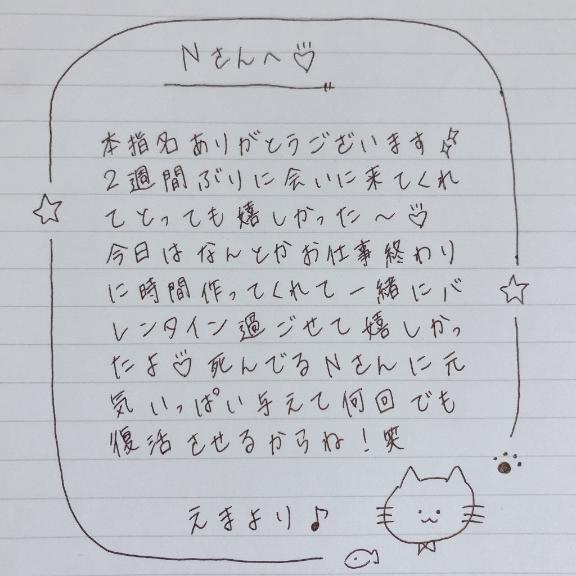 Nさんへ♡
本指名ありがとうございます
2週間ぶりに会いに来てくれ
てとっても嬉しかった〜♡
今日はなんとかお仕事終わり
に時間作ってくれて一緒にバ
レンタイン過ごせて嬉しかっ
たよ♡死んでるNさんに元
気いっぱい与えて何回でも
復活させるからね！笑
えまより♪